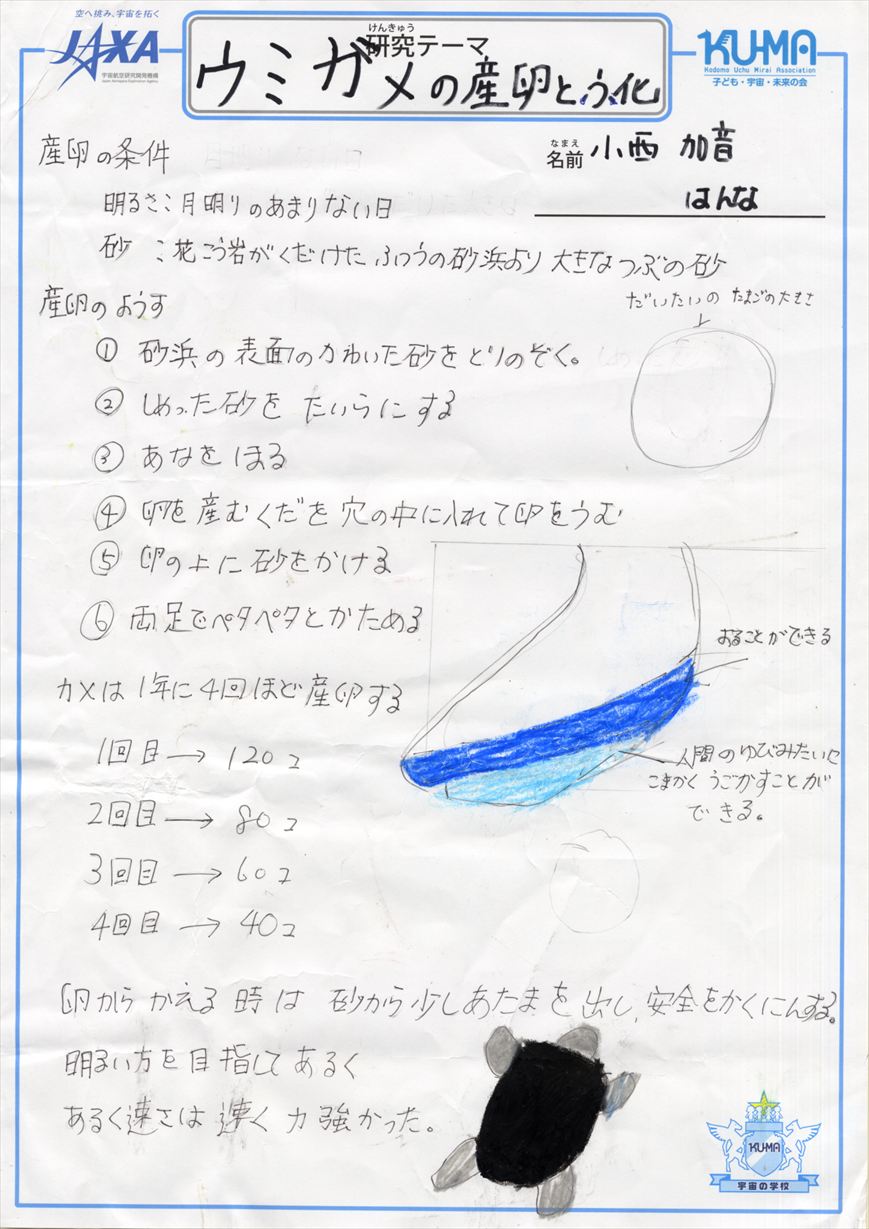 空へ挑み、宇宙を拓く
JAXA
宇宙航空研究開発機構
Japan Aerospace Exploration Agency
けんきゅう
研究テーマ
ウミガメの産卵とふ化
KU-MA
Kodomo Uchu Mirai Association
子ども・宇宙・未来の会
なまえ
名前 小西 加音
はんな
産卵の条件
明るさ:月明りのあまりない日
砂 :花こう岩がくだけた ふつうの砂浜より 大きなつぶの砂
産卵のようす
だいたいの たまごの大きさ
① 砂浜の表面のかわいた砂をとりのぞく。
② しめった砂を たいらにする
③ あなをほる
④ 卵を産むくだを穴の中に入れて卵をうむ
⑤ 卵の上に砂をかける
⑥ 両足でペタペタとかためる
おることができる
カメは1年に4回ほど産卵する
1回目→120コ
人間のゆびみたいに
こまかく うごかすことが
できる。
2回目→80コ
3回目→60コ
4回目→40コ
卵から かえる 時は 砂から少しあたまを出し、安全をかくにんする。
明るい方を目指してあるく
あるく速さは 速く 力強かった。
KU-MA
宇宙の学校